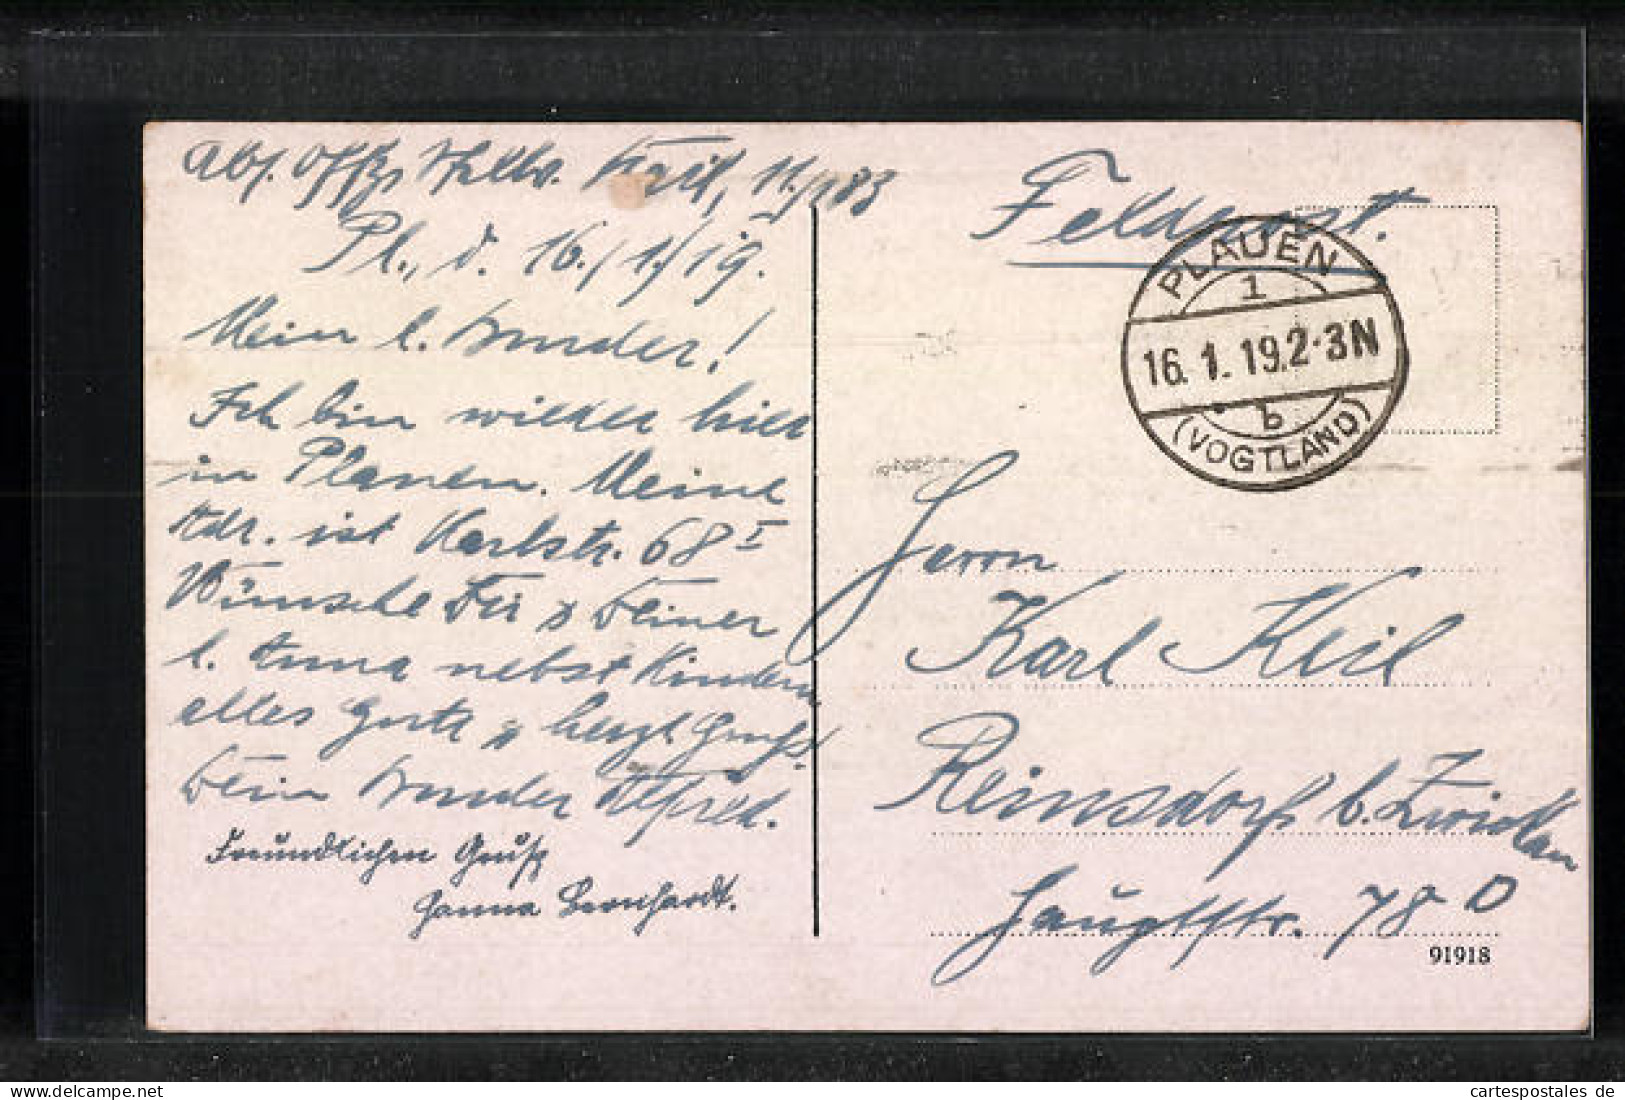 Abs. Offz. Stellv. Keil, 11./183
Pl., d. 16./1./19.
Mein l. Bruder!
Ich bin wieder hier
in Plauen. Meine
Adr. ist Karlstr. 68 I
Wünsche Dir & Deiner
l. Anna nebst Kindern
alles Gute & herzl. Grüße
Dein Bruder Alfred.
Freundlichen Gruß
Hanna Bernhardt.
Feldpost.
PLAUEN
1
16. 1. 19. 2-3 N
b
(VOGTLAND)
Herrn
Karl Keil
Reinsdorf b. Zwickau
Hauptstr. 78 D
91918
cartespostales de